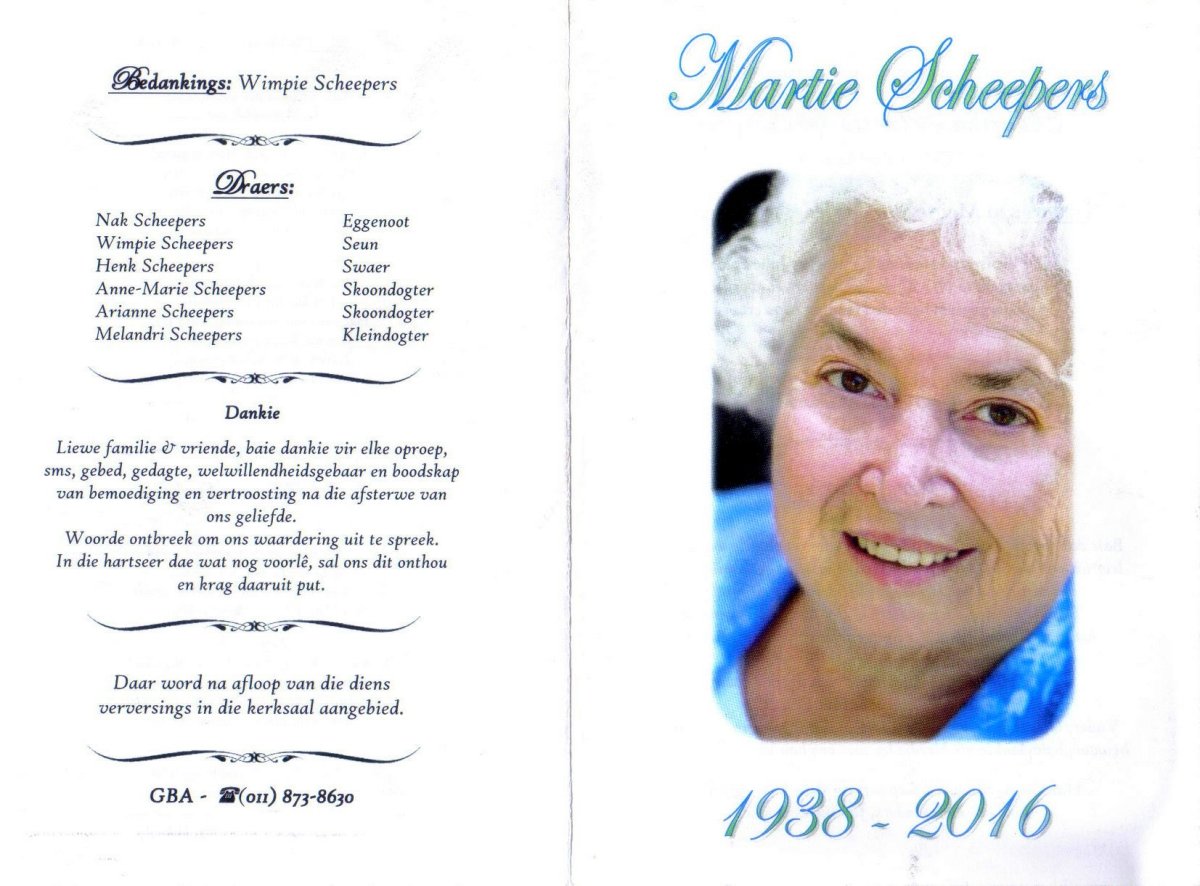 Bedankings: Wimpie Scheepers
Draers:
Nak Scheepers Eggenoot
Wimpie Scheepers Seun
Henk Scheepers Swaer
Anne-Marie Scheepers Skoondogter
Arianne Scheepers Skoondogter
Melandri Scheepers Kleindogter
Dankie
Liewe familie & vriende, baie dankie vir elke oproep,
sms, gebed, gedagte, welwillendheidsgebaar en boodskap
van bemoediging en vertroosting na die afsterwe van
ons geliefde.
Woorde ontbreek om ons waardering uit te spreek.
In die hartseer dae wat nog voorlê, sal ons dit onthou
en krag daaruit put.
Daar word na afloop van die diens
verversings in die kerksaal aangebied.
GBA - ☎(011) 873-8630
Martie Scheepers
1938 - 2016